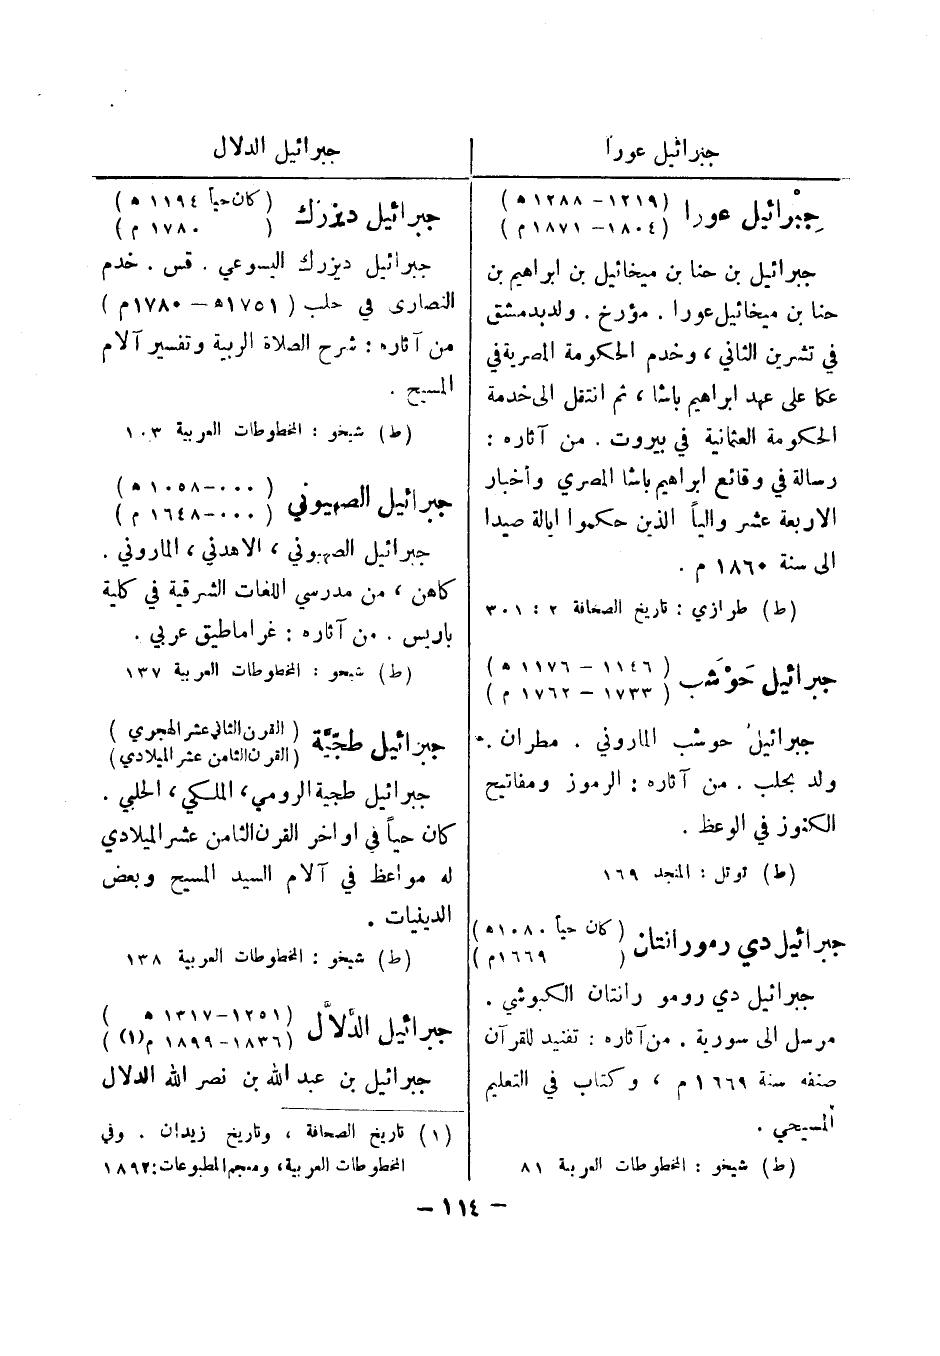 جبرائيل عورا
جِبْرائيل عورا (١٢١٩–١٢٨٨ ه)
(١٨٠٤–١٨٧١ م)
جبرائيل بن حنا بن ميخائيل بن ابراهيم بن
حنا بن ميخائيل عورا . مؤرخ . ولد بدمشق
في تشرين الثاني ، وخدم الحكومة المصرية في
عكا على عهد ابراهيم باشا ، ثم انتقل الى خدمة
الحكومة العثمانية في بيروت . من آثاره :
رسالة في وقائع ابراهيم باشا المصري وأخبار
الاربعة عشر والياً الذين حكموا ايالة صيدا
الى سنة ١٨٦٠ م .
(ط) طرازي : تاريخ الصحافة ٢ : ٣٠١
جبرائيل حَوْشَب (١١٤٦ – ١١٧٦ ه)
(١٧٣٣ – ١٧٦٢ م)
جبرائيل حوشب الماروني . مطران .
ولد بحلب . من آثاره : الرموز ومفاتيح
الكنوز في الوعظ .
(ط) توتل : المنجد ١٦٩
جبرائيل دي رمورانتان (كان حياً ١٠٨٠ ه)
(١٦٦٩ م)
جبرائيل دي رومو رانتان الكبوشي .
مرسل الى سورية . من آثاره : تفنيد للقرآن
صنفه سنة ١٦٦٩ م ، وكتاب في التعليم
المسيحي .
(ط) شيخو : المخطوطات العربية ٨١
جبرائيل الدلال
جبرائيل ديزرك (كان حياً ١١٩٤ ه)
(١٧٨٠ م)
جبرائيل ديزرك اليسوعي . قس . خدم
النصارى في حلب (١٧٥١ه – ١٧٨٠م)
من آثاره : شرح الصلاة الربية وتفسير آلام
المسيح .
(ط) شيخو : المخطوطات العربية ١٠٣
جبرائيل الصهيوني (٠٠٠–١٠٥٨ ه)
(٠٠٠–١٦٤٨ م)
جبرائيل الصهيوني ، الاهدني ، الماروني .
كاهن ، من مدرسي اللغات الشرقية في كلية
باريس . من آثاره : غراماطيق عربي .
(ط) شيخو : المخطوطات العربية ١٣٧
جبرائيل طجيَّة (القرن الثاني عشر الهجري)
(القرن الثامن عشر الميلادي)
جبرائيل طجية الرومي، الملكي ، الحلبي .
كان حياً في اواخر القرن الثامن عشر الميلادي
له مواعظ في آلام السيد المسيح وبعض
الدينيات .
(ط) شيخو : المخطوطات العربية ١٣٨
جبرائيل الدَّلاَّل (١٢٥١–١٣١٧ ه)
(١٨٣٦–١٨٩٩ م(١))
جبرائيل بن عبد الله بن نصر الله الدلال
(١) تاريخ الصحافة ، وتاريخ زيدان . وفي
المخطوطات العربية، ومعجم المطبوعات : ١٨٩٢
– ١١٤ –